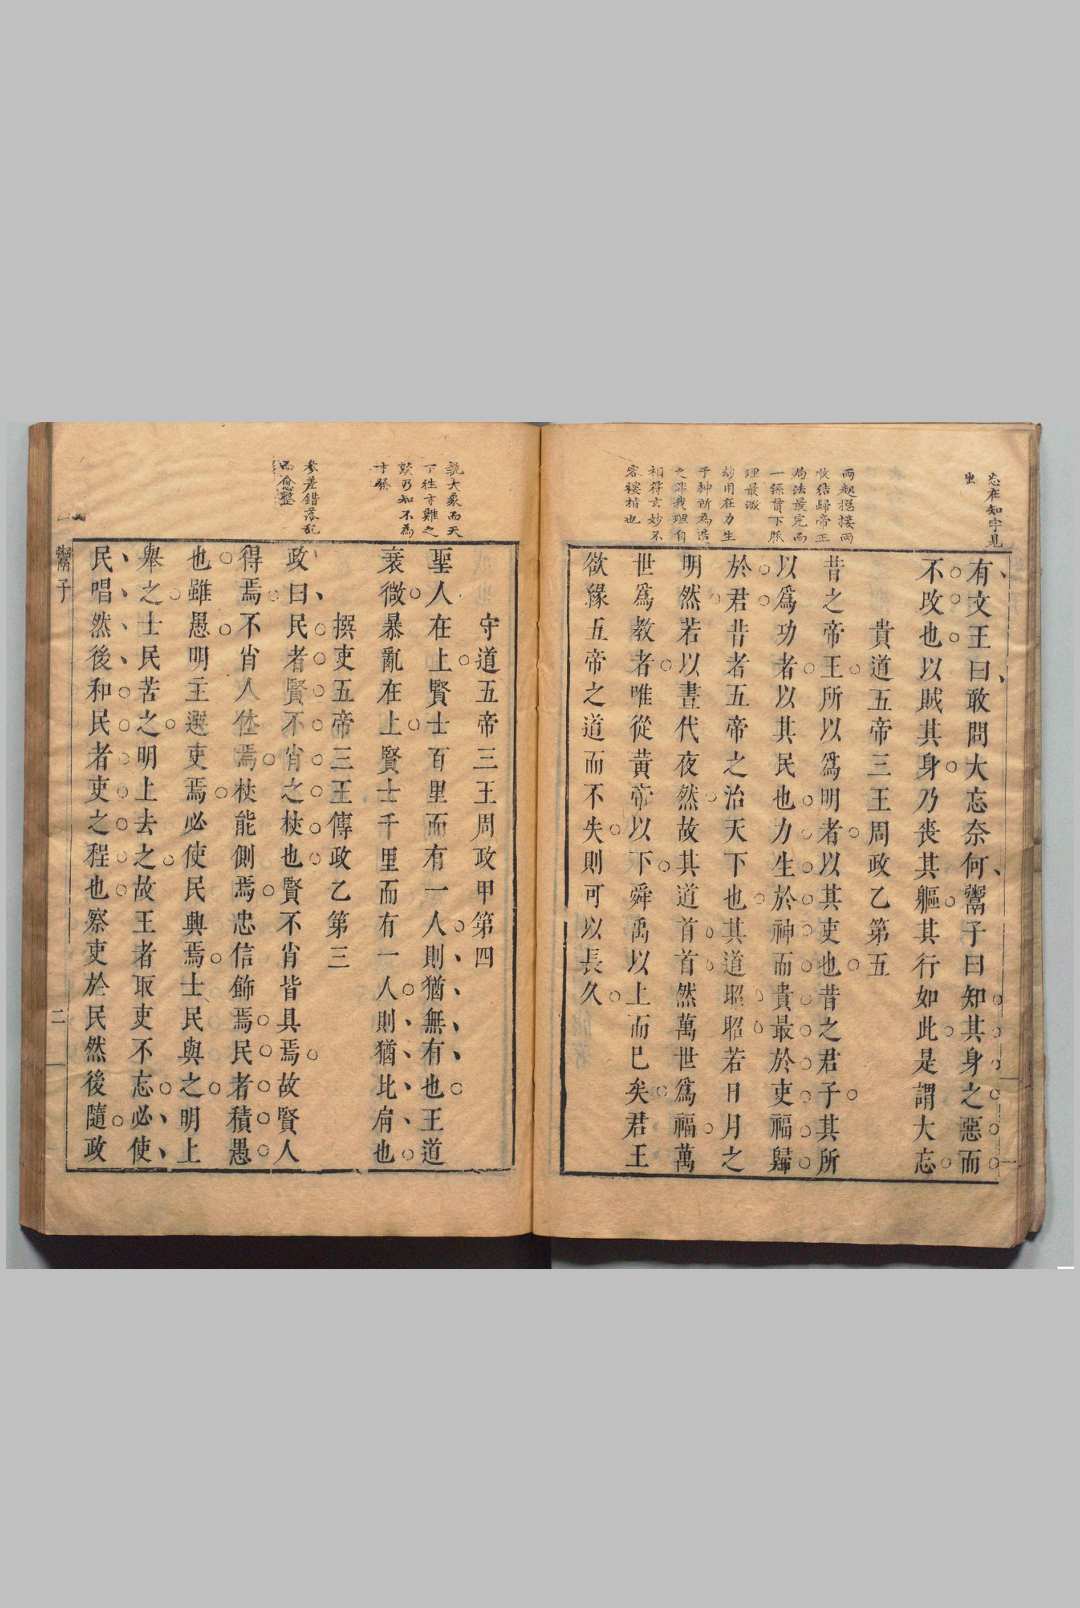 忘在知字見
出
有文王曰敢問大忘奈何鬻子曰知其身之惡而
不改也以賊其身乃喪其軀其行如此是謂大忘
貴道五帝三王周政乙第五
昔之帝王所以爲明者以其吏也昔之君子其所
以爲功者以其民也力生於神而貴最於吏福歸
於君昔者五帝之治天下也其道昭昭若日月之
明然若以晝代夜然故其道首首然萬世爲福萬
世爲教者唯從黄帝以下舜禹以上而已矣君王
欲緣五帝之道而不失則可以長久
守道五帝三王周政甲第四
聖人在上賢士百里而有一人則猶無有也王道
衰微暴亂在上賢士千里而有一人則猶比肩也
撰吏五帝三王傳政乙第三
政曰民者賢不肖之杖也賢不肖皆具焉故賢人
得焉不肖人休焉杖能側焉忠信飾焉民者積愚
也雖愚明主選吏焉必使民興焉士民與之明上
舉之士民苦之明上去之故王者取吏不忘必使
民唱然後和民者吏之程也察吏於民然後隨政
參差錯落亂
而愈整
鬻子
二